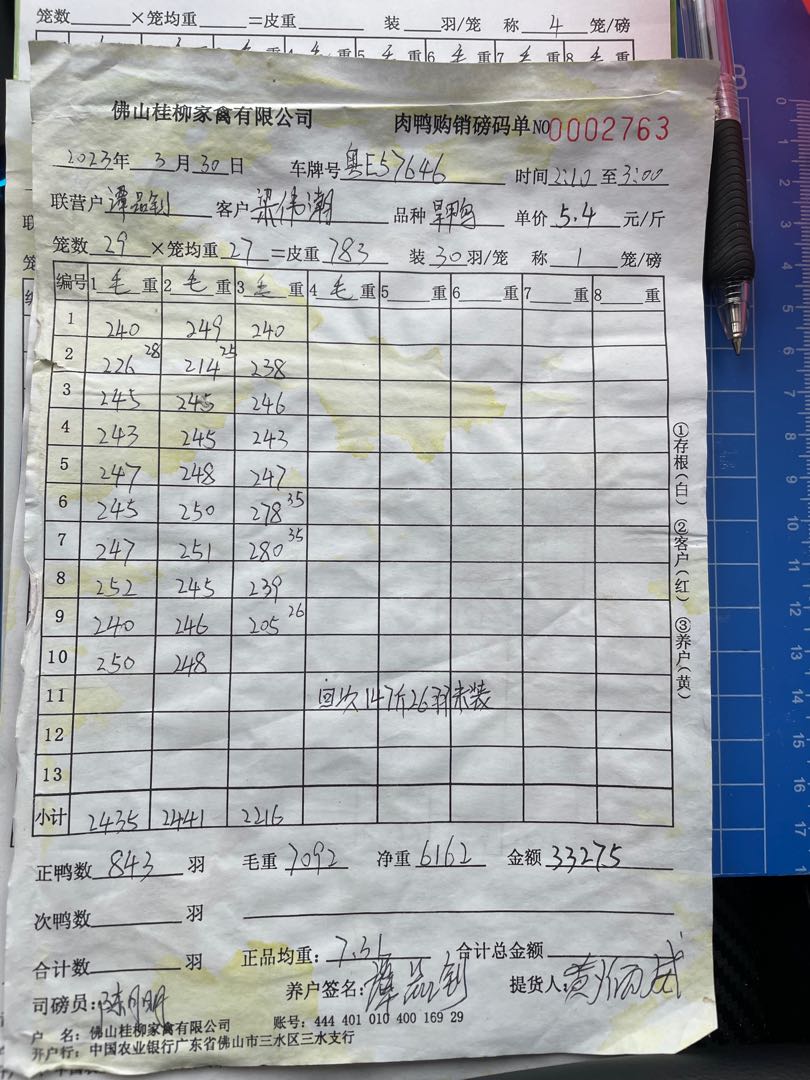 笼数______×笼均重______=皮重______ 装____羽/笼 称 4 笼/磅
佛山桂柳家禽有限公司 肉鸭购销磅码单 NO 0002763
2023年 3月30日 车牌号 粤E57646 时间 2:10 至 3:00
联营户 谭品钊 客户 梁伟潮 品种 旱鸭 单价 5.4 元/斤
笼数 29 ×笼均重 27 =皮重 783 装 30 羽/笼 称 1 笼/磅
编号 1 毛 重 2 毛 重 3 毛 重 4 毛 重 5 重 6 重 7 重 8 重
1 240 249 240
2 226 28 214 25 238
3 245 245 246
4 243 245 243
5 247 248 247
6 245 250 278 35
7 247 251 280 35
8 252 245 239
9 240 246 205 26
10 250 248
11 147斤26羽未装
12
13
小计 2435 2441 2216
正鸭数 843 羽 毛重 7092 净重 6162 金额 33275
次鸭数 羽
合计数 羽 正品均重: 7.31 合计总金额
司磅员: 养户签名: 谭品钊 提货人:
户 名: 佛山桂柳家禽有限公司 账号: 444 401 010 400 169 29
开户行: 中国农业银行广东省佛山市三水区三水支行
①存根(白) ②客户(红) ③养户(黄)
0 1 2 3 4 5 6 7 8 9 10 11 12 13 14 15 16 17